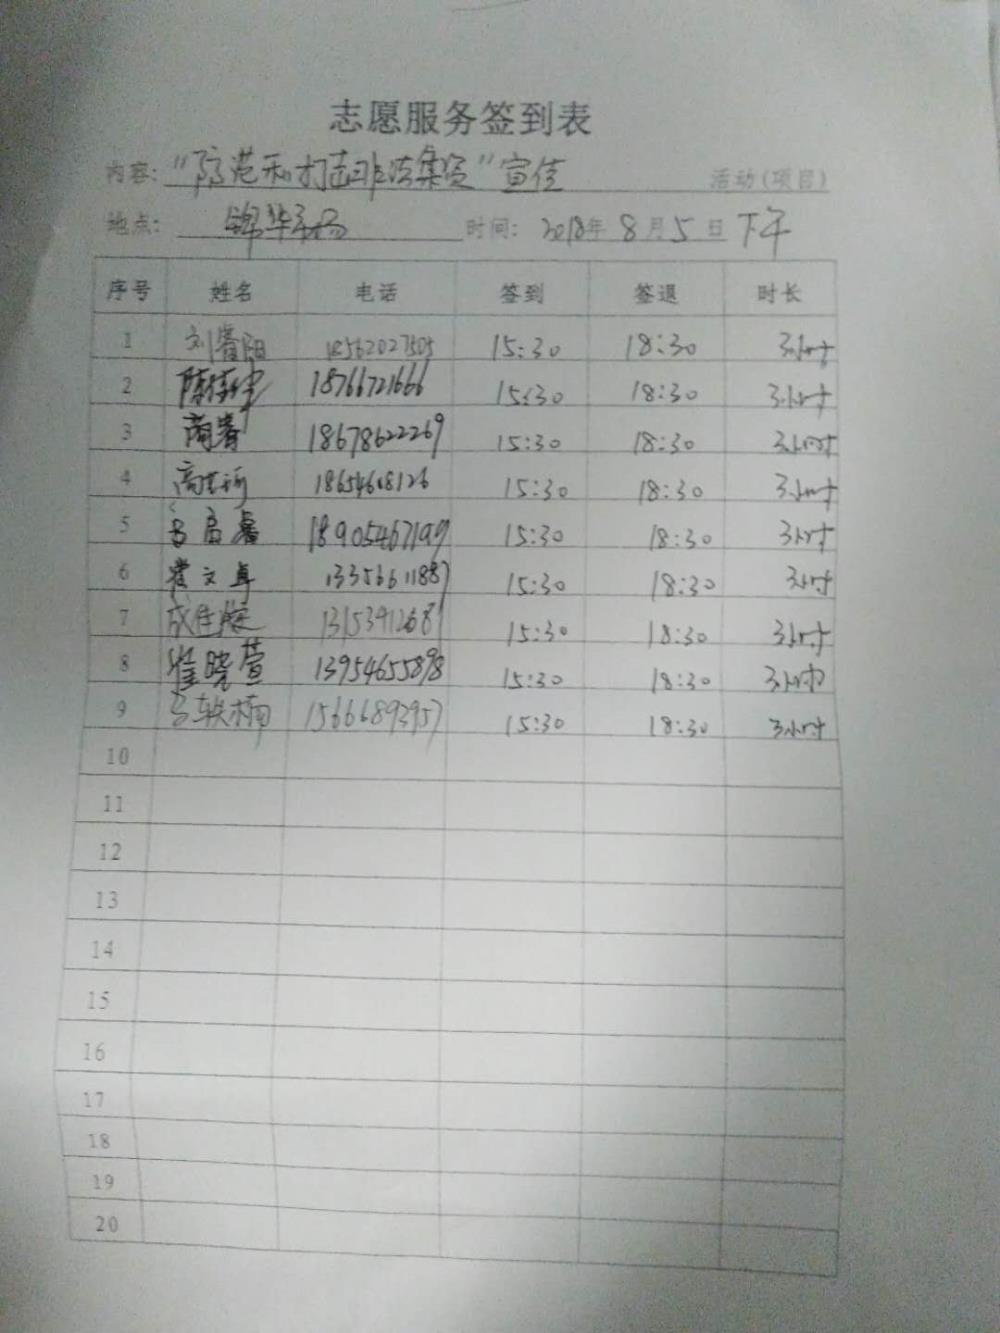 志愿服务签到表
内容: “防范和打击非法集资”宣传 活动(项目)
地点: 锦华市场 时间: 2018年 8月5日 下午
序号 姓名 电话 签到 签退 时长
1 刘睿阳 18562027505 15:30 18:30 3小时
2 18766721666 15:30 18:30 3小时
3 蔺睿 18678622269 15:30 18:30 3小时
4 15:30 18:30 3小时
5 吕启睿 18905467199 15:30 18:30 3小时
6 崔文卓 15:30 18:30 3小时
7 15:30 18:30 3小时
8 崔晓萱 13954655898 15:30 18:30 3小时
9 马轶楠 15666893957 15:30 18:30 3小时
10
11
12
13
14
15
16
17
18
19
20